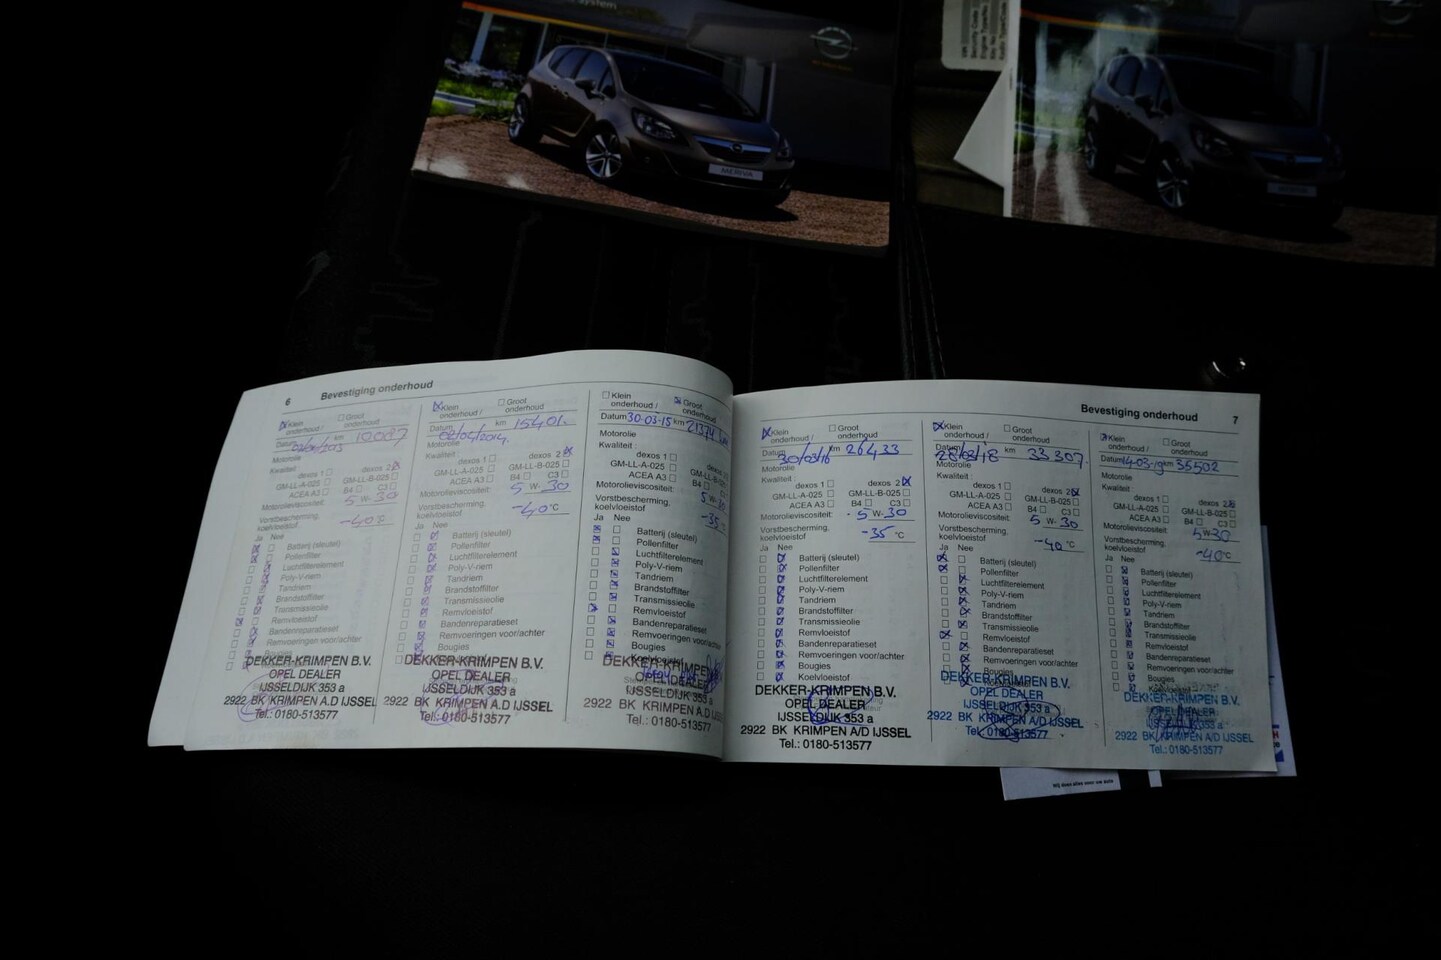 MERIVA
6 Bevestiging onderhoud
Klein onderhoud / Groot onderhoud
km 10.087
Motorolie
Kwaliteit:
dexos 1 dexos 2
GM-LL-A-025 GM-LL-B-025
ACEA A3 B4 C3
Motorolieviscositeit: 5 W- 30
Vorstbescherming, koelvloeistof -40 °C
Ja Nee
Batterij (sleutel)
Pollenfilter
Luchtfilterelement
Poly-V-riem
Tandriem
Brandstoffilter
Transmissieolie
Remvloeistof
Bandenreparatieset
Remvoeringen voor/achter
DEKKER-KRIMPEN B.V.
OPEL DEALER
IJSSELDIJK 353 a
2922 BK KRIMPEN A.D IJSSEL
Tel.: 0180-513577
Klein onderhoud / Groot onderhoud
Datum 02/04/2014 km 15401.
Motorolie
Kwaliteit:
dexos 1 dexos 2
GM-LL-A-025 GM-LL-B-025
ACEA A3 B4 C3
Motorolieviscositeit: 5 W- 30
Vorstbescherming, koelvloeistof -40 °C
Ja Nee
Batterij (sleutel)
Pollenfilter
Luchtfilterelement
Poly-V-riem
Tandriem
Brandstoffilter
Transmissieolie
Remvloeistof
Bandenreparatieset
Remvoeringen voor/achter
Bougies
DEKKER-KRIMPEN B.V.
OPEL DEALER
IJSSELDIJK 353 a
2922 BK KRIMPEN A.D IJSSEL
Tel.: 0180-513577
Klein onderhoud / Groot onderhoud
Datum 30-03-15 km 21374
Motorolie
Kwaliteit:
dexos 1
GM-LL-A-025
ACEA A3 B4
Motorolieviscositeit: 5 W-
Vorstbescherming, koelvloeistof -35 °C
Ja Nee
Batterij (sleutel)
Pollenfilter
Luchtfilterelement
Poly-V-riem
Tandriem
Brandstoffilter
Transmissieolie
Remvloeistof
Bandenreparatieset
Remvoeringen voor/achter
Bougies
DEKKER-KRIMPEN
OPEL DEALER
IJSSELDIJK 353 a
2922 BK KRIMPEN A.D IJSSEL
Tel.: 0180-513577
Bevestiging onderhoud 7
Klein onderhoud / Groot onderhoud
Datum 30/03/16 km 26433
Motorolie
Kwaliteit:
dexos 1 dexos 2
GM-LL-A-025 GM-LL-B-025
ACEA A3 B4 C3
Motorolieviscositeit: 5 W- 30
Vorstbescherming, koelvloeistof -35 °C
Ja Nee
Batterij (sleutel)
Pollenfilter
Luchtfilterelement
Poly-V-riem
Tandriem
Brandstoffilter
Transmissieolie
Remvloeistof
Bandenreparatieset
Remvoeringen voor/achter
Bougies
Koelvloeistof
DEKKER-KRIMPEN B.V.
OPEL DEALER
IJSSELDIJK 353 a
2922 BK KRIMPEN A/D IJSSEL
Tel.: 0180-513577
Klein onderhoud / Groot onderhoud
Datum 28/03/18 km 33307
Motorolie
Kwaliteit:
dexos 1 dexos 2
GM-LL-A-025 GM-LL-B-025
ACEA A3 B4 C3
Motorolieviscositeit: 5 W- 30
Vorstbescherming, koelvloeistof -40 °C
Ja Nee
Batterij (sleutel)
Pollenfilter
Luchtfilterelement
Poly-V-riem
Tandriem
Brandstoffilter
Transmissieolie
Remvloeistof
Bandenreparatieset
Remvoeringen voor/achter
Bougies
DEKKER-KRIMPEN B.V.
OPEL DEALER
IJSSELDIJK 353 a
2922 BK KRIMPEN A/D IJSSEL
Tel. 0180-513577
Klein onderhoud / Groot onderhoud
Datum 14-03-19 km 35502
Motorolie
Kwaliteit:
dexos 1 dexos 2
GM-LL-A-025 GM-LL-B-025
ACEA A3 B4 C3
Motorolieviscositeit: 5 W- 30
Vorstbescherming, koelvloeistof -40 °C
Ja Nee
Batterij (sleutel)
Pollenfilter
Luchtfilterelement
Poly-V-riem
Tandriem
Brandstoffilter
Transmissieolie
Remvloeistof
Bandenreparatieset
Remvoeringen voor/achter
Bougies
DEKKER-KRIMPEN B.V.
OPEL DEALER
IJSSELDIJK 353 a
2922 BK KRIMPEN A/D IJSSEL
Tel.: 0180-513577
Wij doen alles voor uw auto